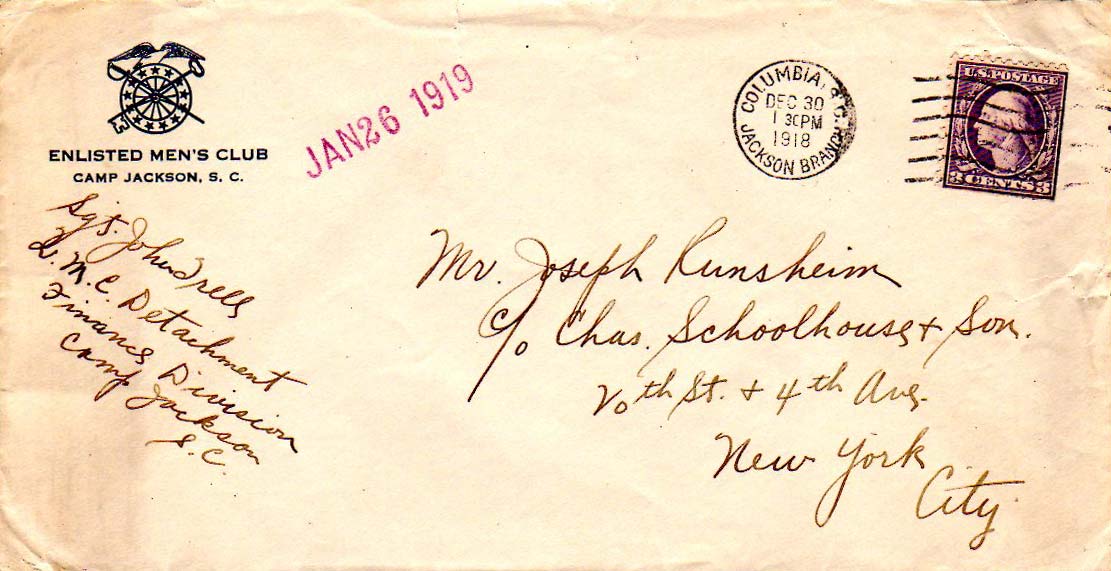 ENLISTED MEN'S CLUB
CAMP JACKSON, S. C.
JAN 26 1919
COLUMBIA, S.C.
DEC 30
1 30PM
1918
JACKSON BRANCH
U.S. POSTAGE
3 CENTS 3
Sgt. John
Q. M. C. Detachment
Finance Division
Camp Jackson
S. C.
Mr. Joseph Runsheim
c/o Chas. Schoolhouse + Son.
20th St. + 4th Ave.
New York
City